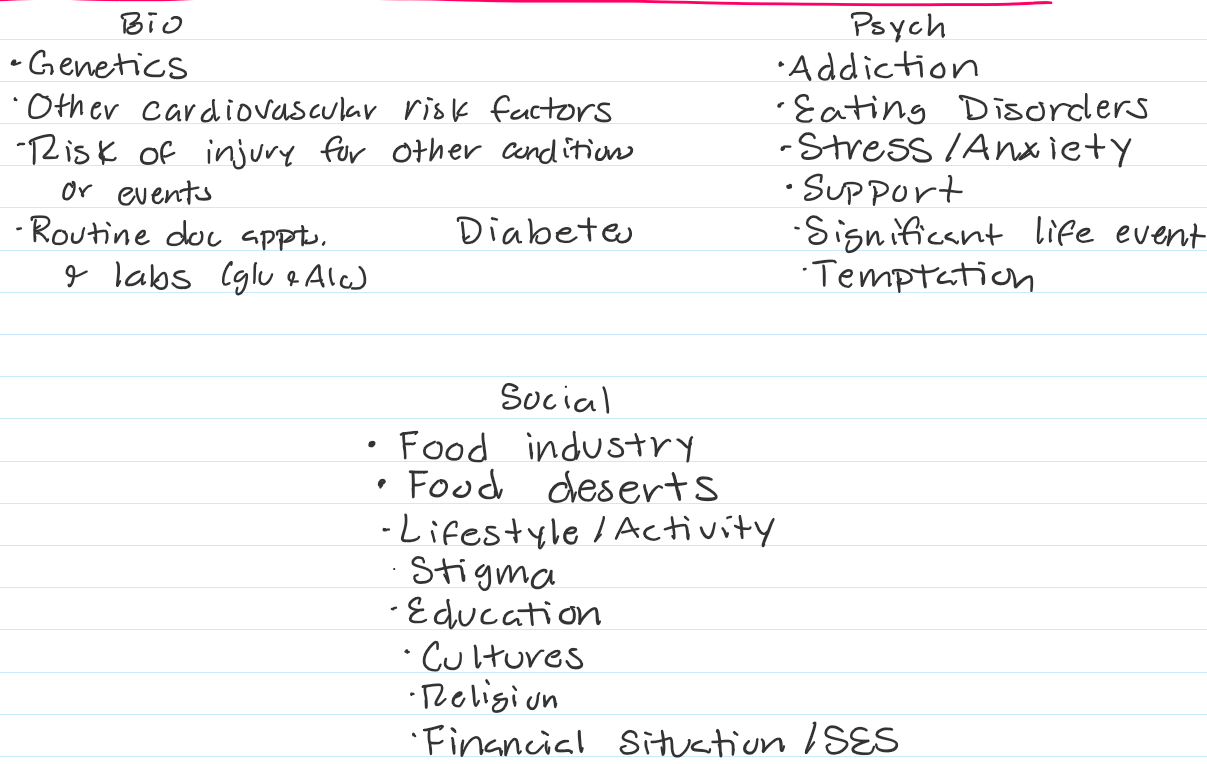 Bio
• Genetics
• Other cardiovascular risk factors
- Risk of injury for other conditions
or events
- Routine doc appts.
& labs (glu & A1c)
Diabetes
Psych
• Addiction
• Eating Disorders
- Stress / Anxiety
• Support
• Significant life event
• Temptation
Social
• Food industry
• Food deserts
- Lifestyle / Activity
• Stigma
- Education
• Cultures
• Religion
• Financial Situation / SES